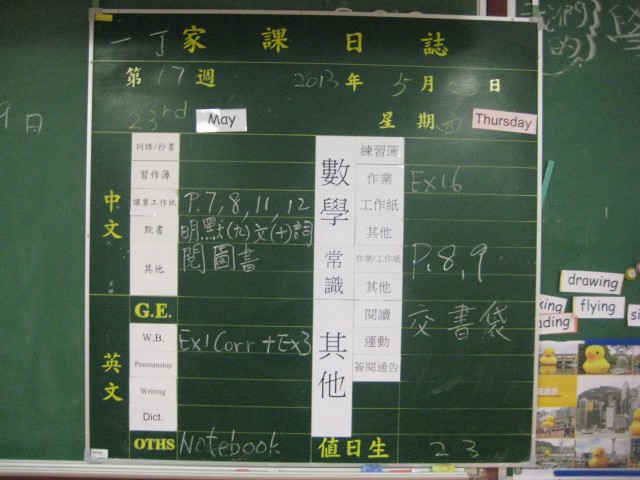 一丁家課日誌
第17週 2013年 5月 23日
23rd May 星期四 Thursday
9日
我們
的
學
中文
詞語/抄書
習作簿
課業工作紙 P.7, 8, 11, 12
默書 明默(九)文(十)詞
其他 閱圖書
英文
G.E.
W.B. Ex1 Corr + Ex3
Penmanship
Writing
Dict.
OTHS Notebook
數學
練習簿
作業 Ex16
工作紙
其他
常識
作業/工作紙 P.8, 9
其他
其他
閱讀 交書袋
運動
簽閱通告
值日生 23
drawing
flying
king
ading
si